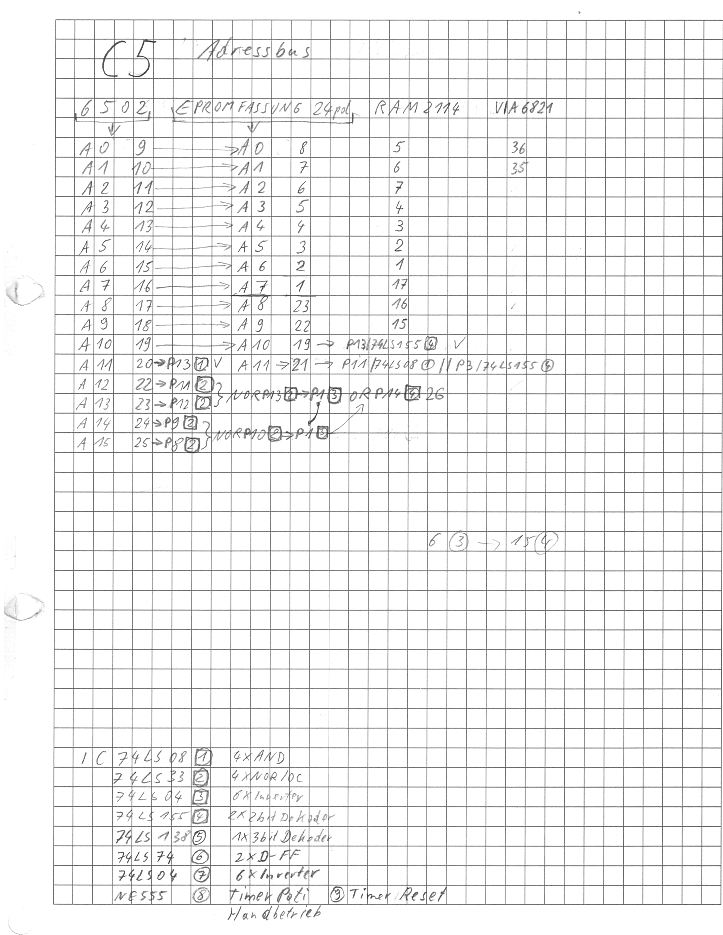 C5 Adressbus
6502 EPROMFASSUNG 24pol. RAM2114 VIA6821
A 0 9 → A 0 8 5 36
A 1 10 → A 1 7 6 35
A 2 11 → A 2 6 7
A 3 12 → A 3 5 4
A 4 13 → A 4 4 3
A 5 14 → A 5 3 2
A 6 15 → A 6 2 1
A 7 16 → A 7 1 17
A 8 17 → A 8 23 16
A 9 18 → A 9 22 15
A 10 19 → A 10 19 → P13/74LS155 4 V
A 11 20 → P13 1 V A 11 → 21 → P11/74LS08 1 // P3/74LS155 4
A 12 22 → P11 2
A 13 23 → P12 2 } NOR P13 2 → P1 3 OR P14 26
A 14 24 → P9 2
A 15 25 → P8 2 } NOR P10 2 → P1 3
6 3 → 15 4
IC 74LS 08 1 4xAND
74LS 33 2 4xNOR/OC
74LS 04 3 6xInverter
74LS 155 4 2x2bit Dekoder
74LS 138 5 1x3bit Dekoder
74LS 74 6 2xD-FF
74LS04 7 6xInverter
NE555 8 Timer Poti 9 Timer Reset
Handbetrieb